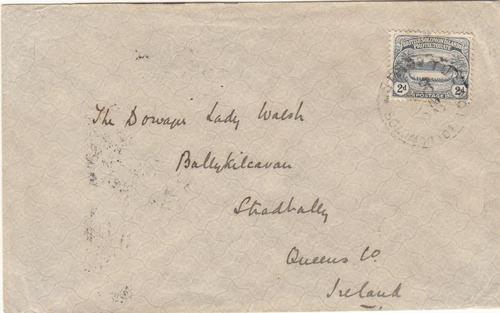 BRITISH SOLOMON ISLANDS
PROTECTORATE
2d 2d
POSTAGE
The Dowager Lady Walsh
Ballykilcavan
Stradbally
Queens Co.
Ireland